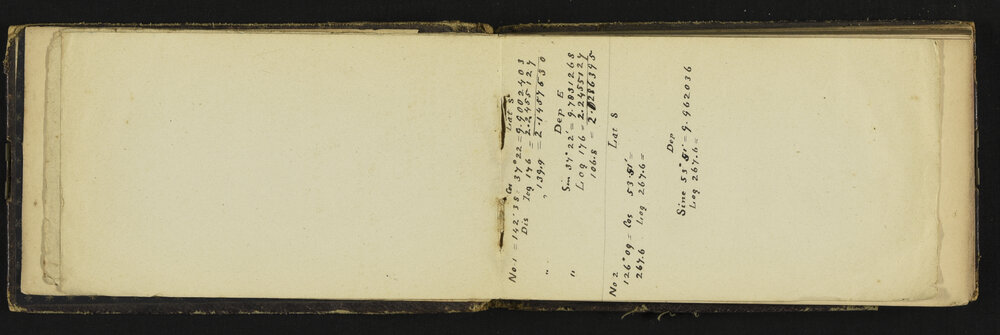 Lat S
No. 1 = 142°.38 = Cos 37°22 = 9.9002403
Dis log 176 = 2.2455127
" . , 139.9 = 2.1457530
Dep E
Sin 37°22' = 9.7831268
Log 176 = 2.2455127
" 106.8 = 2.0286395
No 2 Lat S
126°09 = Cos 53.51' =
267.6 Log 267.6 =
Dep
Sine 53°51' = 9.962036
Log 267.6 =